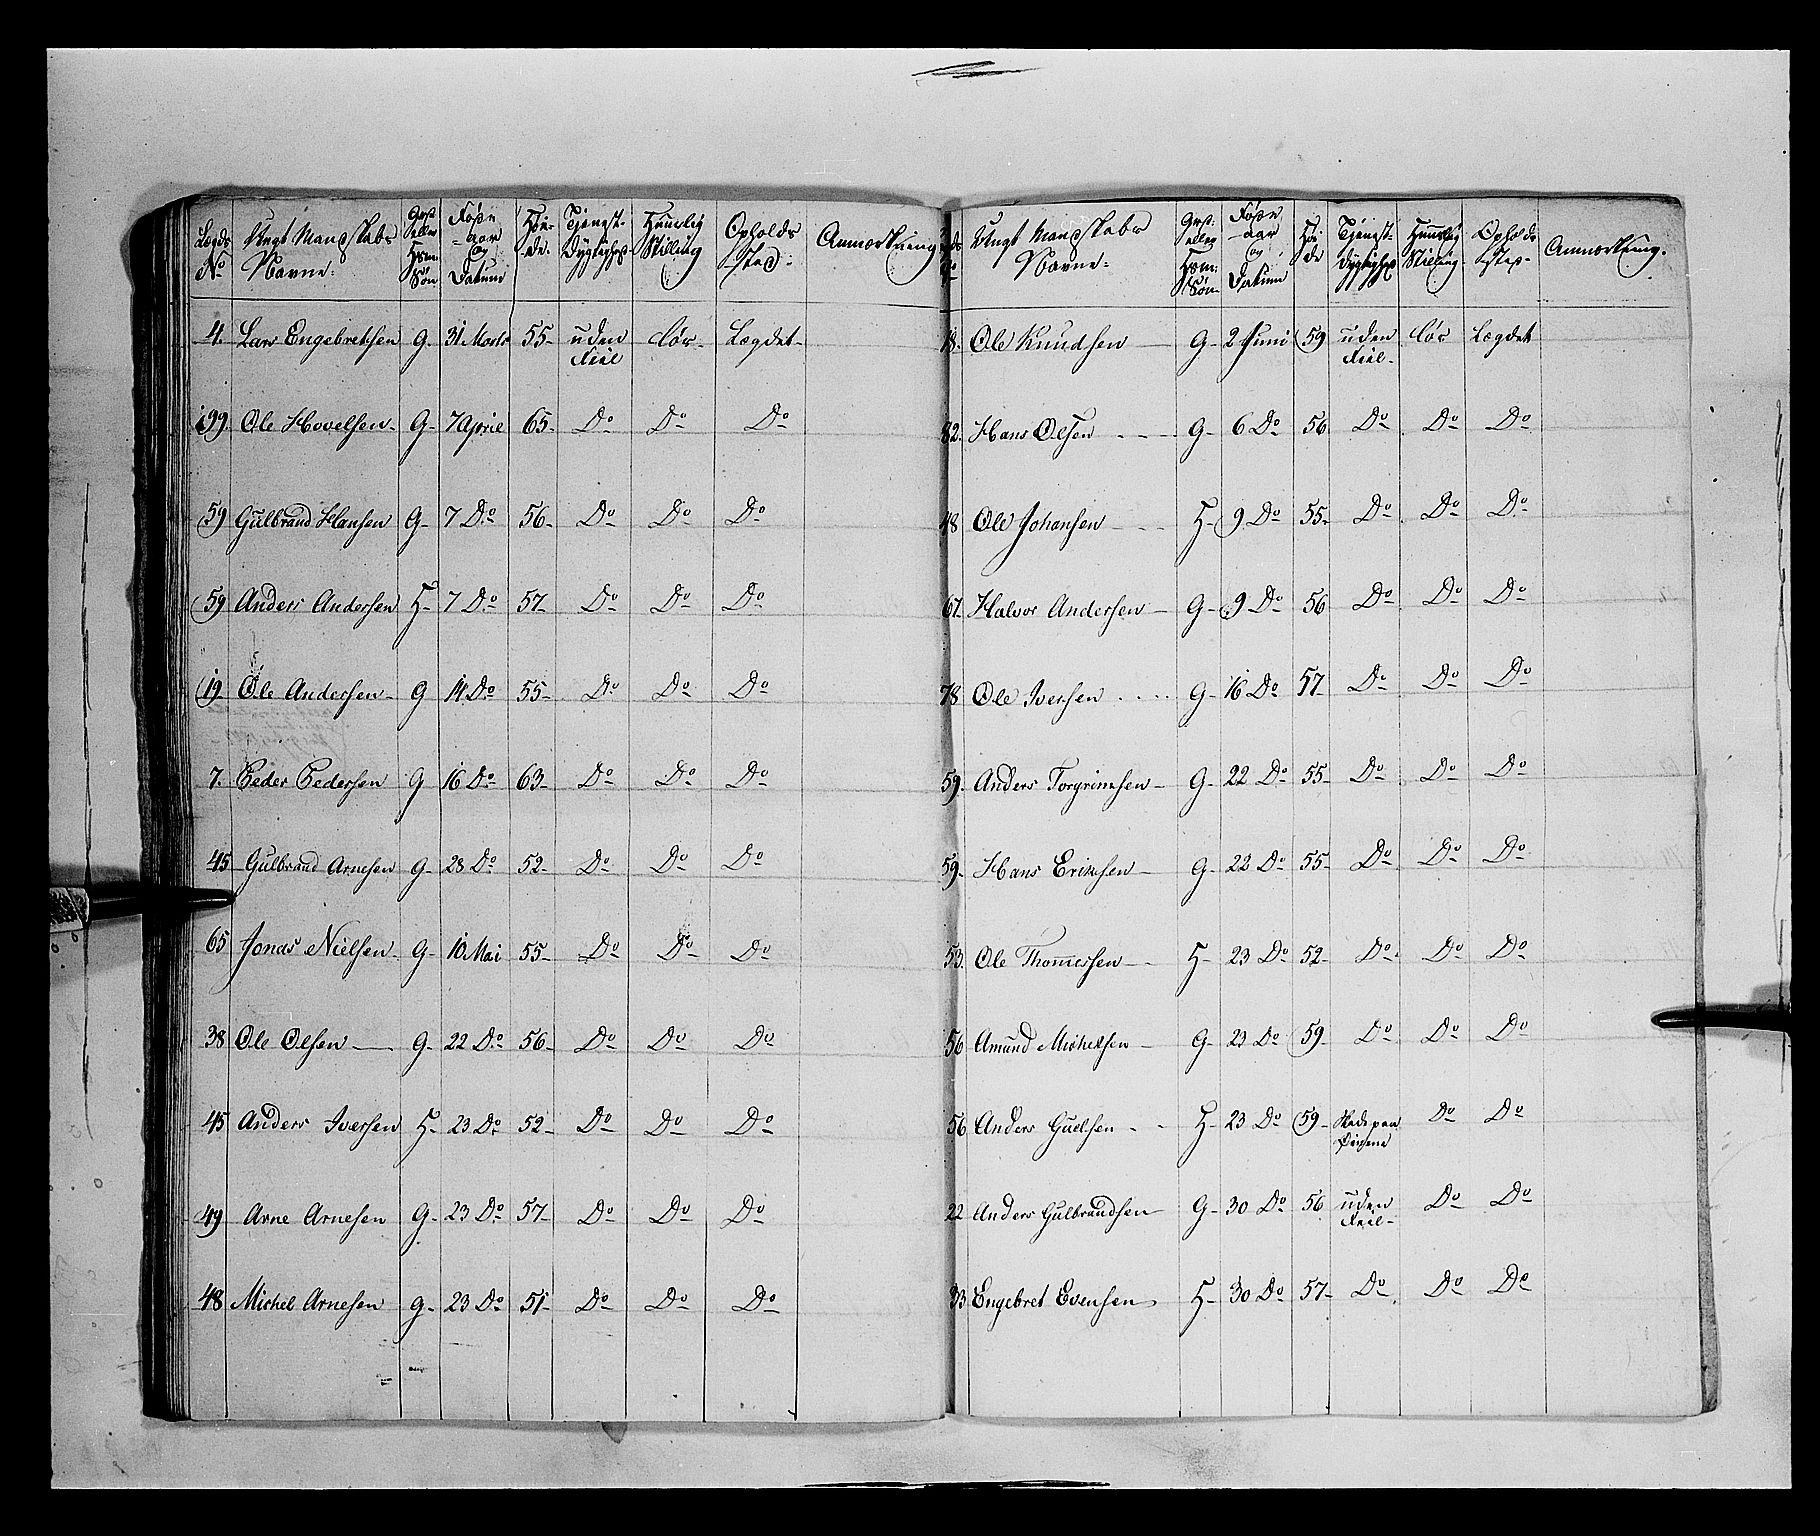 Lægds No Ungt Mandskabs Navne. Grd. eller Hsm. Søn Føds aar og Datum Høide Tjenest-Dygtighed Huuslig Stilling Opholds sted Anmærkning
4. Lars Engebretsen G. 31 Marts 55 uden Feil lös Lægdet
99. Ole Hovelsen G 7 April 65 Do Do Do
59 Gulbrand Hansen G 7 Do 56 Do Do Do
59 Anders Andersen H 7 Do 57 Do Do Do
19 Ole Andersen G 14 Do 55 Do Do Do
7. Peder Pedersen G 16 Do 63 Do Do Do
45 Gulbrand Arnesen G 28 Do 52 Do Do Do
65 Jonas Nielsen G 10 Mai 55 Do Do Do
38 Ole Olsen G 22 Do 56 Do Do Do
45 Anders Iversen H 23 Do 52 Do Do Do
49 Arne Arnesen G 23 Do 57 Do Do Do
48 Michel Arnesen G 23 Do 51 Do Do Do
Ungt Mandskabs Navne. Grd. eller Hsm. Søn Føds aar og Datum Høide Tjenest-Dygtighed Huuslig Stilling Opholds sted Anmærkning.
18. Ole Knudsen G 2 Juni 59 uden Feil lös Lægdet
82. Hans Olsen G 6 Do 56 Do Do Do
48 Ole Johansen H 9 Do 55 Do Do Do
67. Halvor Andersen G 9 Do 56 Do Do Do
78 Ole Iversen G 16 Do 57 Do Do Do
59. Anders Torgrimsen G 22 Do 55 Do Do Do
59. Hans Eriksen G 22 Do 55 Do Do Do
53. Ole Thommesen H 23 Do 52 Do Do Do
56 Amund Michelsen G 23 Do 59 Do Do Do
56 Anders Guelsen H 23 Do 59 paa Do Do
22 Anders Gulbrandsen G 30 Do 56 uden Feil Do Do
33 Engebret Evensen H 30 Do 57 Do Do Do